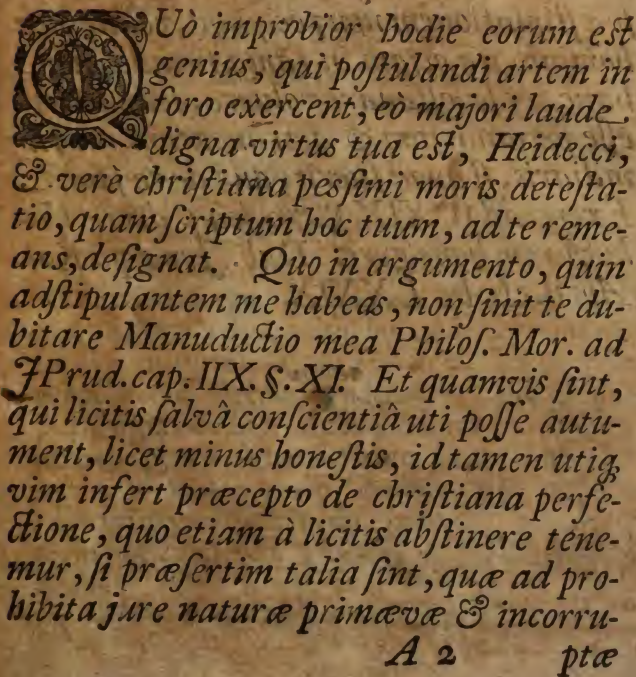 QUò improbior hodiè eorum est
genius, qui postulandi artem in
foro exercent, eò majori laude
digna virtus tua est, Heidecci,
& verè christiana pessimi moris detesta-
tio, quam scriptum hoc tuum, ad te reme-
ans, designat. Quo in argumento, quin
adstipulantem me habeas, non sinit te du-
bitare Manuductio mea Philos. Mor. ad
JPrud. cap. IIX. §. XI. Et quamvis sint,
qui licitis salvâ conscientiâ uti posse autu-
ment, licet minus honestis, id tamen utiq;
vim infert præcepto de christiana perfe-
ctione, quo etiam à licitis abstinere tene-
mur, si præsertim talia sint, quæ ad pro-
hibita jure naturæ primævæ & incorru-
A 2 ptæ